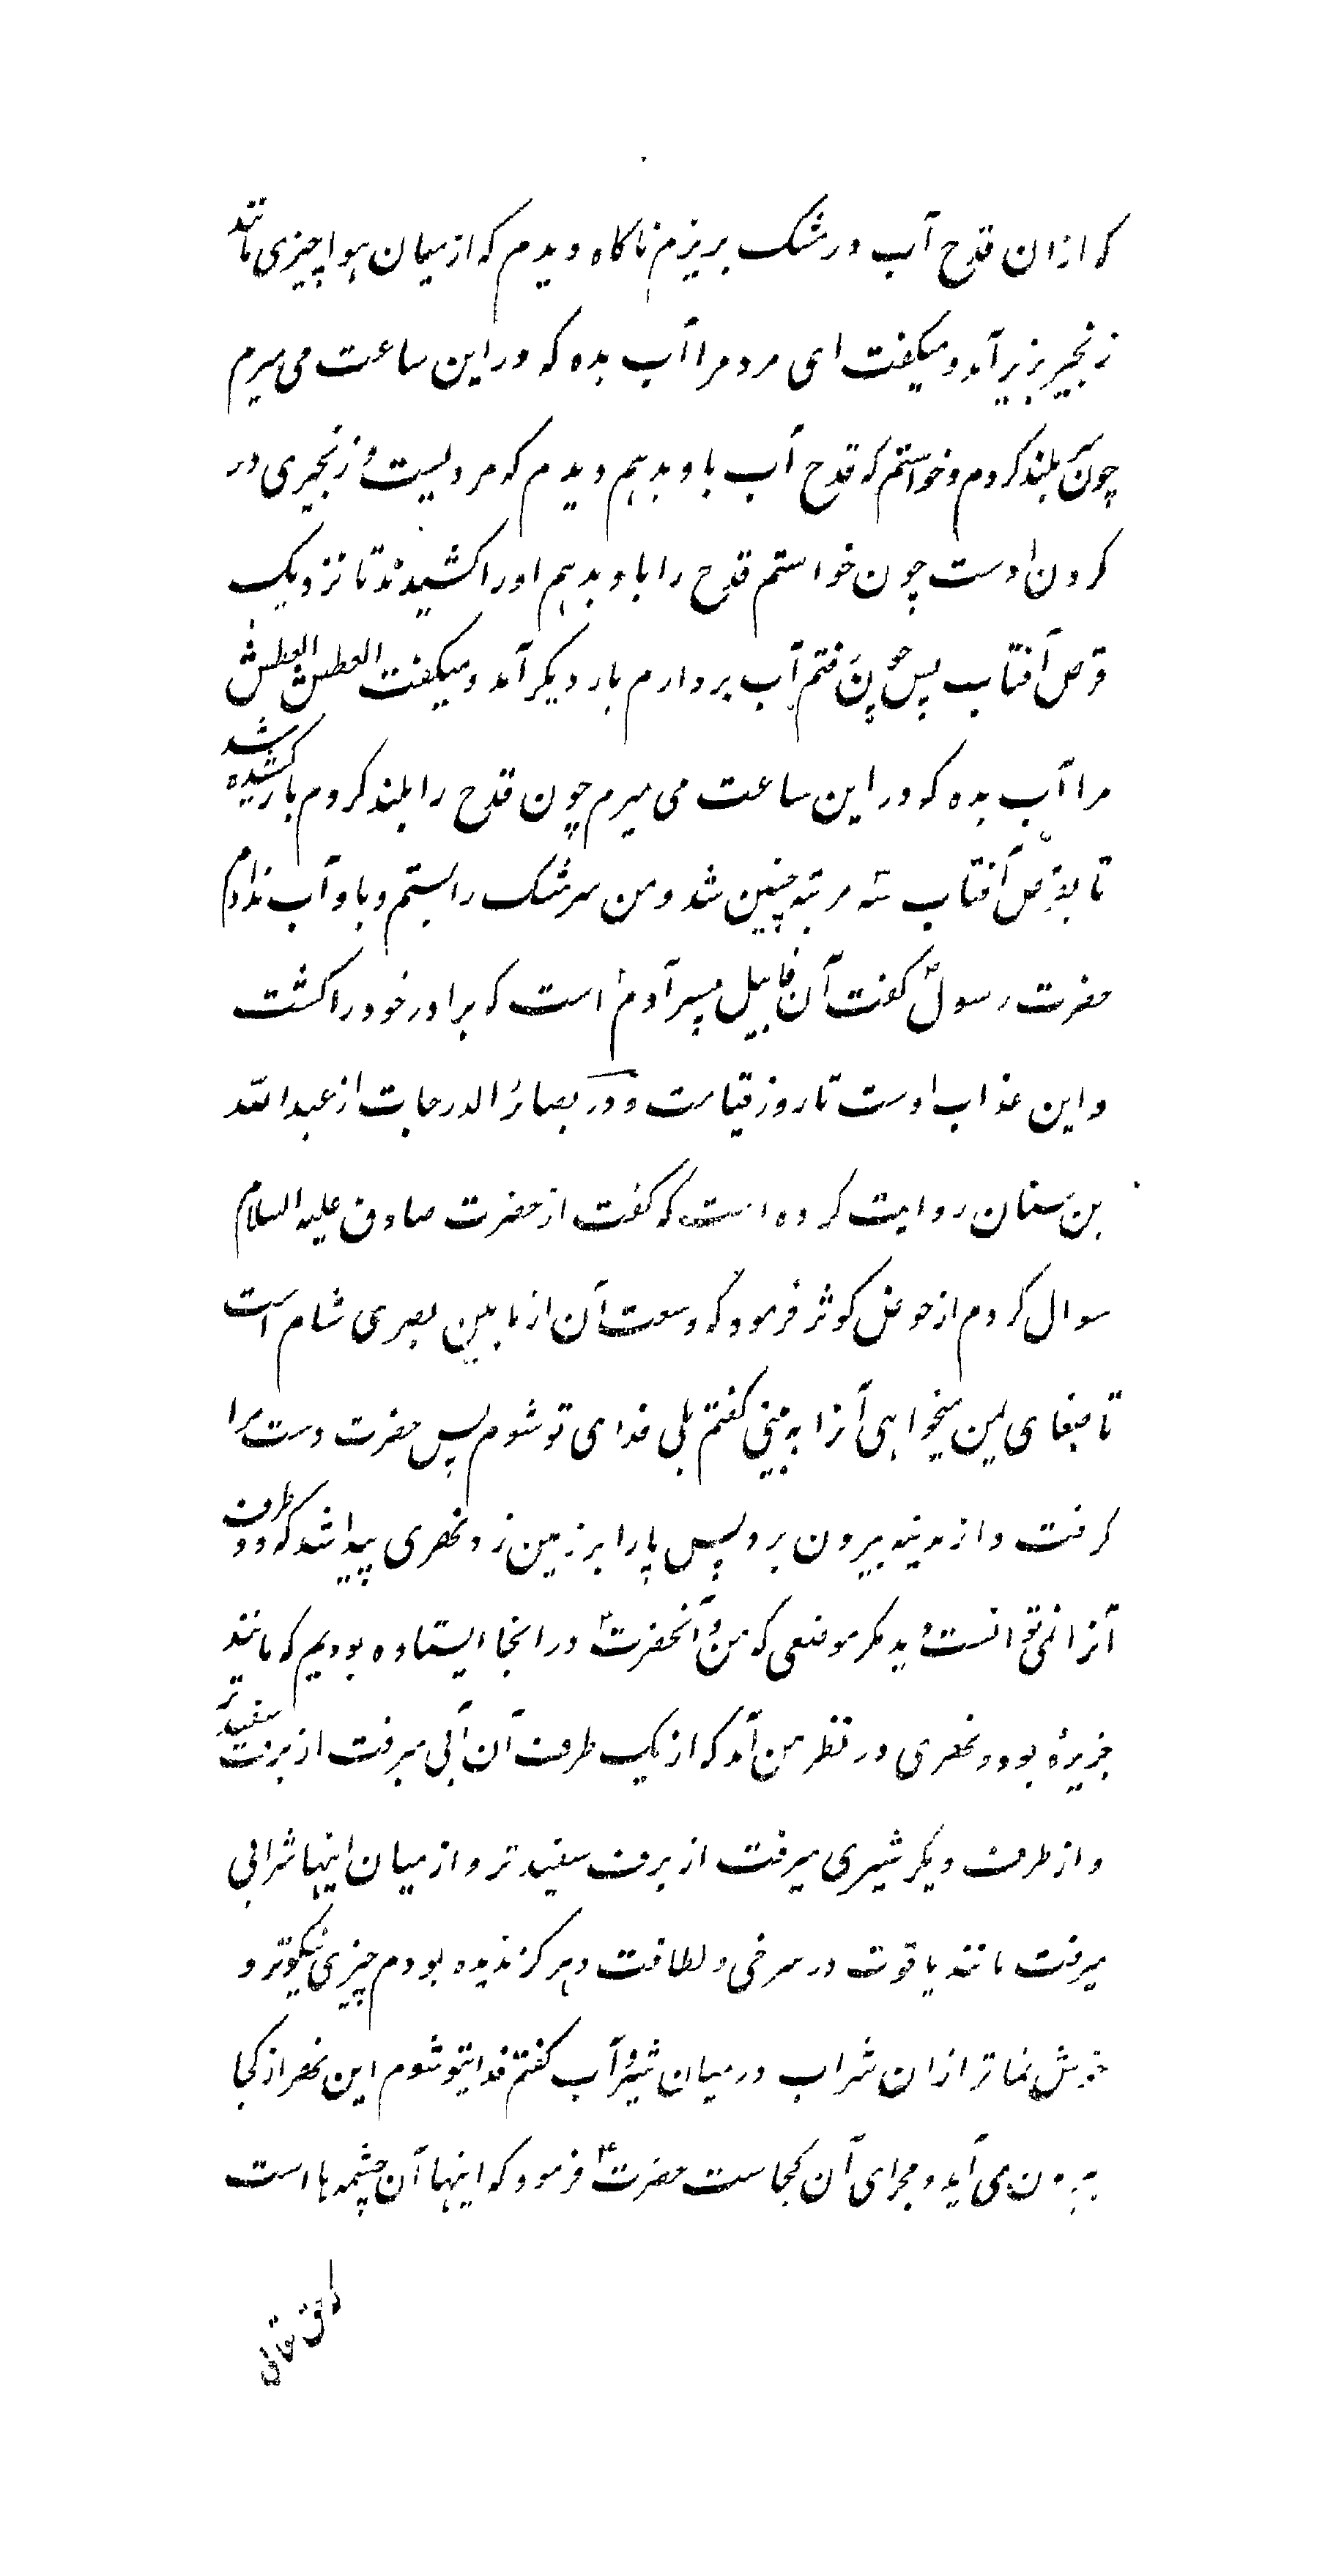 که ازان قدح آب در مشک بریزم ناکاه دیدم که از میان هوا چیزی مانند
زنجیر بزیر آمد و میکفت ای مرد مرا آب بده که در این ساعت می میرم
چون سر بلند کردم و خواستم که قدح آب باو بدهم دیدم که مردیست و زنجیری در
کردن اوست چون خواستم قدح را باو بدهم او را کشیدند تا نزدیک
قرص آفتاب پس چون رفتم آب بردارم بار دیکر آمد و میکفت العطش العطش
مرا آب بده که در این ساعت می میرم چون قدح را بلند کردم باز کشیده شد
تا بقرص آفتاب سه مرتبه چنین شد و من سر مشک را بستم و باو آب ندادم
حضرت رسول ص کفت آن قابیل پسر آدم است که برادر خود را کشت
و این عذاب اوست تا روز قیامت و در بصائر الدرجات از عبد الله
بن سنان روایت کرده است که کفت از حضرت صادق علیه السلام
سوال کردم از حوض کوثر فرمود که وسعت آن از ما بین بصری شام است
تا صنعای یمن میخواهی آنرا به بینی کفتم بلی فدای تو شوم پس حضرت دست مرا
کرفت و از مدینه بیرون برد پس پا را بر زمین زد نهری پیدا شد که دو طرف
آنرا نمی توانست دید مکر موضعی که من و آنحضرت ع در انجا ایستاده بودیم که مانند
جزیرهٔ بود و نهری در نظر من آمد که از یک طرف آن آبی میرفت از برف سفید تر
و از طرف دیکر شیری میرفت از برف سفید تر و از میان اینها شرابی
میرفت مانند یاقوت در سرخی و لطافت و هرکز ندیده بودم چیزی نیکوتر و
خوش نما تر ازان شراب در میان شیر و آب کفتم فدایتو شوم این نهر از کجا
بیرون می آید و مجرای آن کجاست حضرت ع فرمود که اینها آن چشمه ها است
که حق تعالی